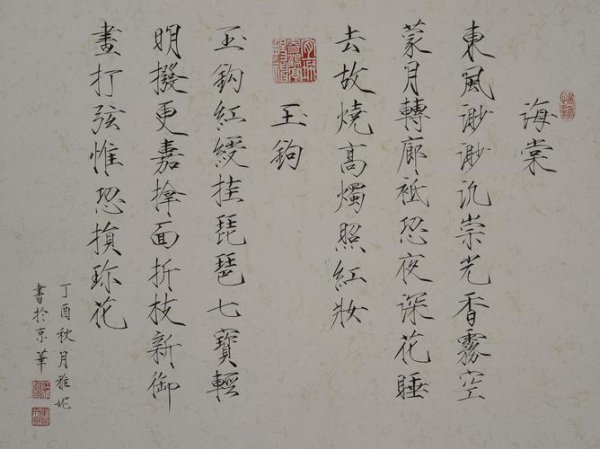 海棠
東風渺渺汎崇光香霧空
蒙月轉廊祗恐夜深花睡
去故燒高燭照紅妝
玉鉤
玉鉤紅綬挂琵琶七寶輕
明撥更嘉面折枝新御
畫打弦惟恐損珎花
丁酉秋月雅妮
書於京華